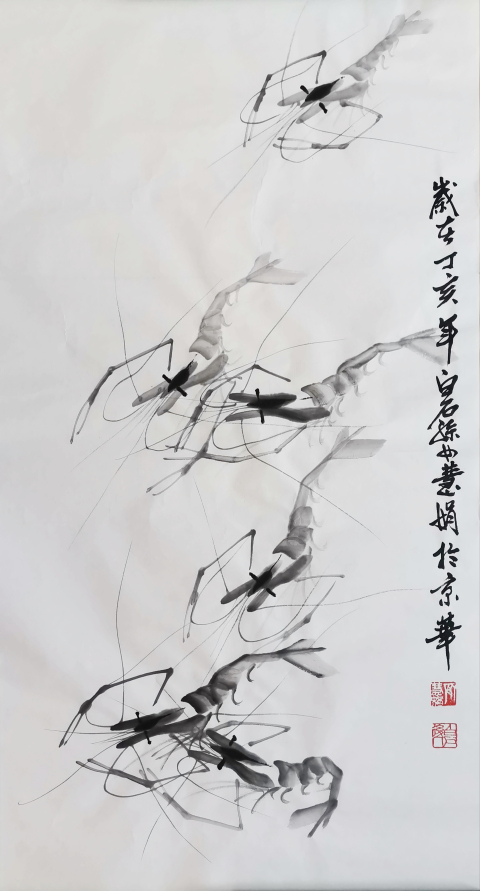 歲在丁亥年白石孫女慧娟於京華